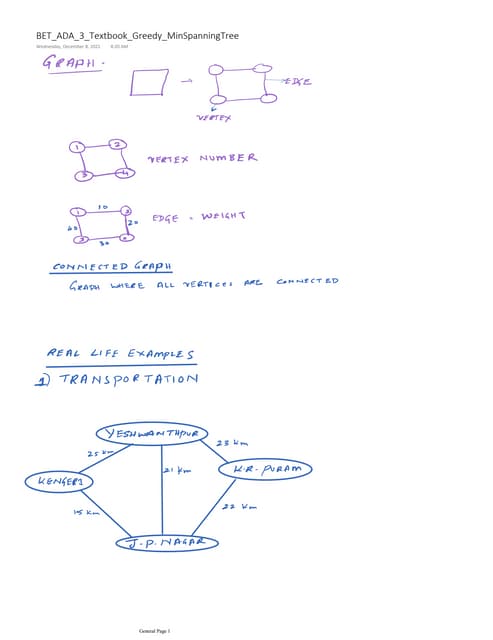 BET_ADA_3_Textbook_Greedy_MinSpanningTree
Wednesday, December 8, 2021 8:20 AM
GRAPH -
EDGE
VERTEX
1 2
3 4
VERTEX NUMBER
10
1
60 20
30
EDGE - WEIGHT
CONNECTED GRAPH
GRAPH WHERE ALL VERTICES ARE CONNECTED
REAL LIFE EXAMPLES
1) TRANSPORTATION
YESHWANTHPUR
25 km 23 km
21 km
KENGERI K.R. PURAM
15 km 22 km
J.P. NAGAR
General Page 1